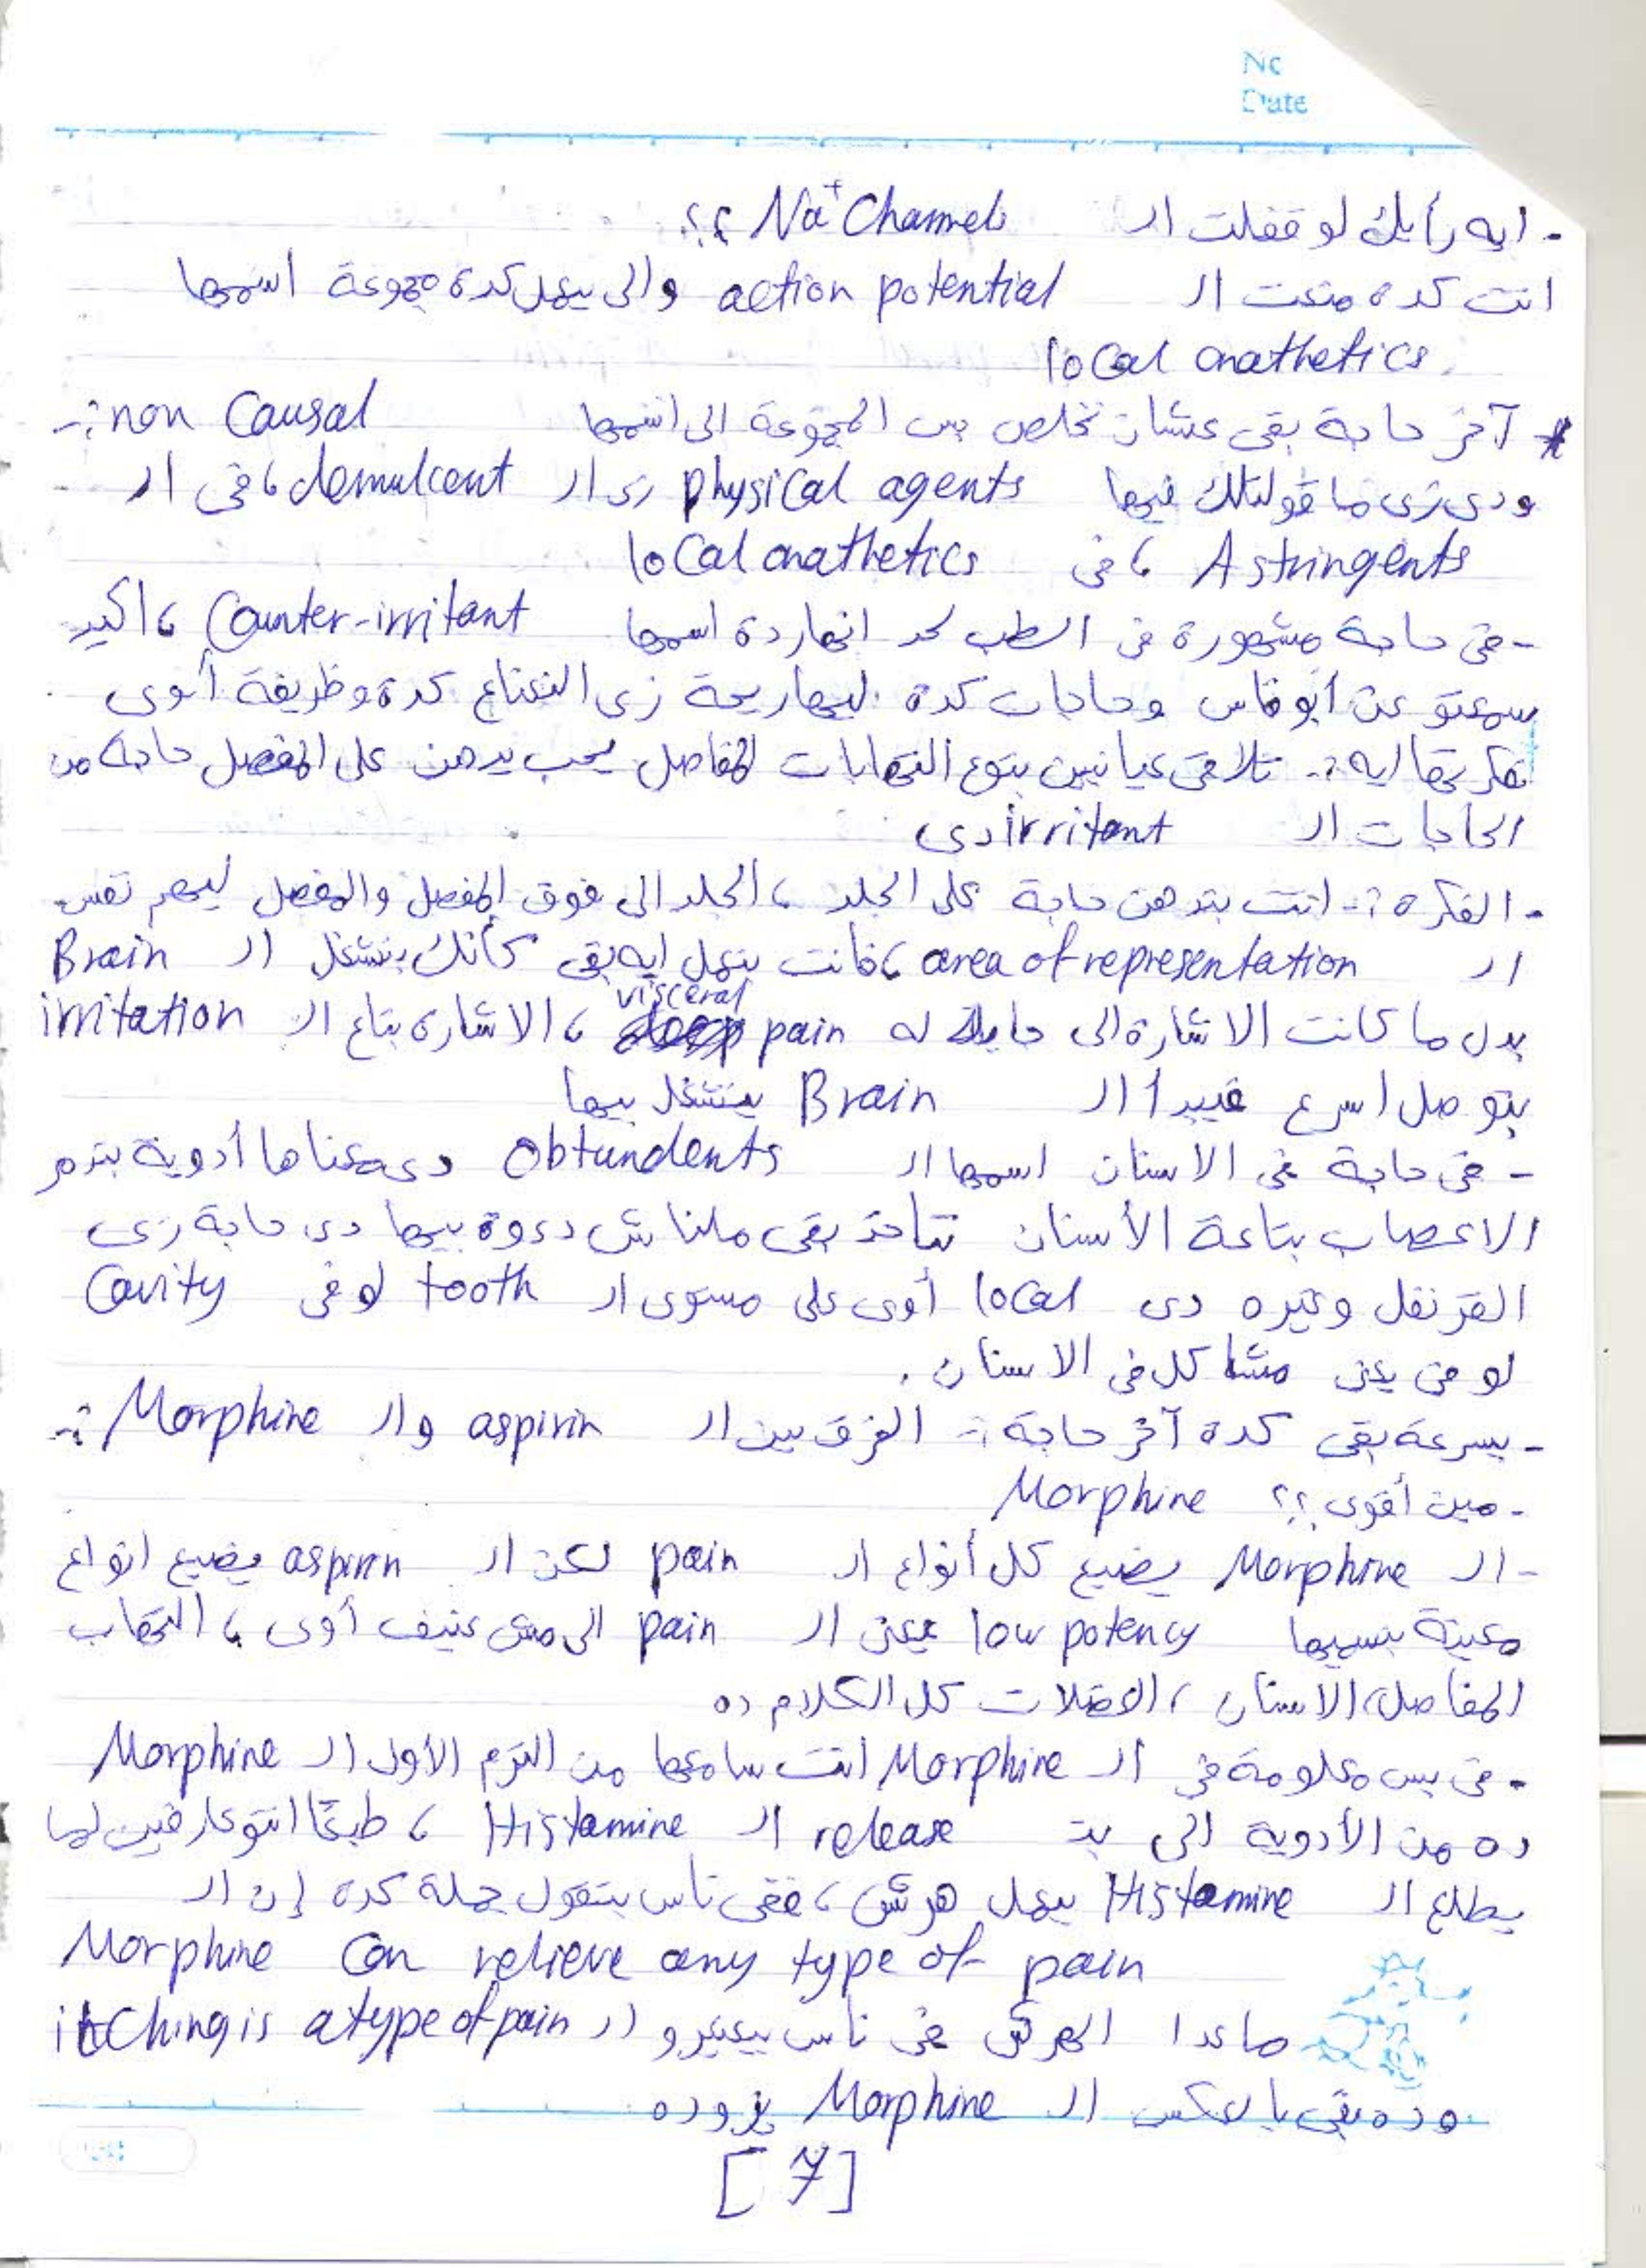 No
Date
- ايه رأيك لو قفلت الـ Na+ Channels ؟؟
انت كده منعت الـ action potential والى بيعمل كده مجموعة اسمها
local anathetics.
* آخر حاجة بقى عشان نخلص بس المجموعة الى اسمها non Causal :-
ودى زى ما قولتلك فيها physical agents زى الـ demulcent ، فى الـ
Astringents ، فى local anathetics
- فى حاجة مشهورة فى الطب لحد انهاردة اسمها Counter-irritant ، اكيد
سمعتو عن أبو فاس وحاجات كدة ليها ريحة زى النعناع كدة وظريفة أوى
فكرتها ايه :- تلاقى عيانين بتوع التهابات المفاصل يحب يدهن على المفصل حاجة من
الحاجات الـ irritant دى
- الفكرة :- انت بتدهن حاجة على الجلد ، الجلد الى فوق المفصل والمفصل ليهم نفس
الـ area of representation ، فانت بتعمل ايه بقى كأنك بتشغل الـ Brain
بدل ما كانت الاشارة الى جايله له visceral pain ، الاشارة بتاع الـ irritation
بتوصل اسرع فيبدأ الـ Brain يتشغل بيها
- فى حاجة فى الاسنان اسمها الـ Obtundents دى معناها أدوية بتدمر
الاعصاب بتاعة الأسنان بقى ملناش دعوة بيها دى حاجة زى
القرنفل وغيره دى local أوى على مستوى الـ tooth لو فى Cavity
لو فى يعنى مشاكل فى الاسنان .
- بسرعة بقى كدة آخر حاجة :- الفرق بين الـ aspirin والـ Morphine :-
- مين أقوى ؟؟ Morphine
- الـ Morphine يضيع كل أنواع الـ pain لكن الـ aspirin يضيع انواع
معينة بنسميها low potency يعنى الـ pain الى مش عنيف أوى ، التهاب
المفاصل ، الاسنان ، العضلات كل الكلام ده
- فى بس معلومة فى الـ Morphine انت سامعها من الترم الأول الـ Morphine
ده من الأدوية الى بتـ release الـ Histamine ، طبعًا انتو عارفين لما
يطلع الـ Histamine بيعمل هرش ، ففى ناس بتقول جملة كدة إن الـ
Morphine Can relieve any type of pain
ماعدا الهرش فى ناس بيعتبرو الـ itching is a type of pain
وده بقى بالعكس الـ Morphine يزوده
[7]